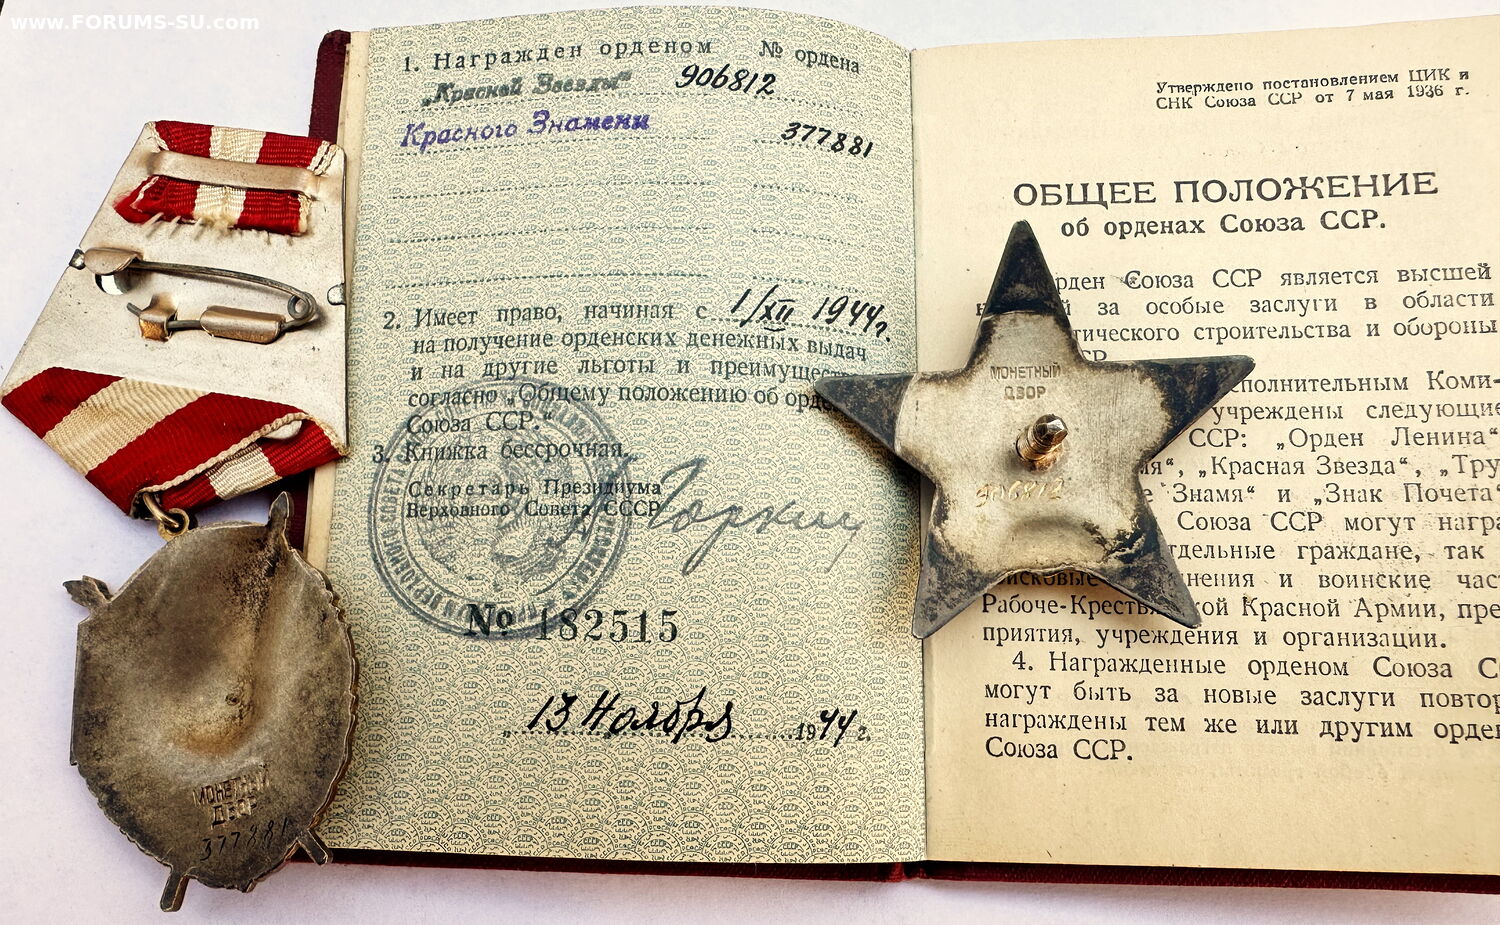 www.FORUMS-SU.com
1. Награжден орденом № ордена
„Красной Звезды“ 906812
Красного Знамени 377881
2. Имеет право, начиная с 1/XII 1944 г.
на получение орденских денежных выдач
и на другие льготы и преимущест
согласно „Общему положению об орд
Союза ССР.“
3. Книжка бессрочная.
Секретарь Президиума
Верховного Совета СССР
Горкин
№ 182515
„13 Ноября 1944 г.
МОНЕТНЫЙ
ДВОР
377881
Утверждено постановлением ЦИК и
СНК Союза ССР от 7 мая 1936 г.
ОБЩЕЕ ПОЛОЖЕНИЕ
об орденах Союза ССР.
рден Союза ССР является высшей
за особые заслуги в области
тического строительства и обороны
СР
сполнительным Коми-
учреждены следующие
ССР: „Орден Ленина“
мя“, „Красная Звезда“, „Тру
Знамя“ и „Знак Почета“
Союза ССР могут награ
тдельные граждане, так
нения и воинские час
Рабоче-Кресть кой Красной Армии, пре
приятия, учреждения и организации.
4. Награжденные орденом Союза С
могут быть за новые заслуги повтор
награждены тем же или другим орде
Союза ССР.
МОНЕТНЫЙ
ДВОР
906812